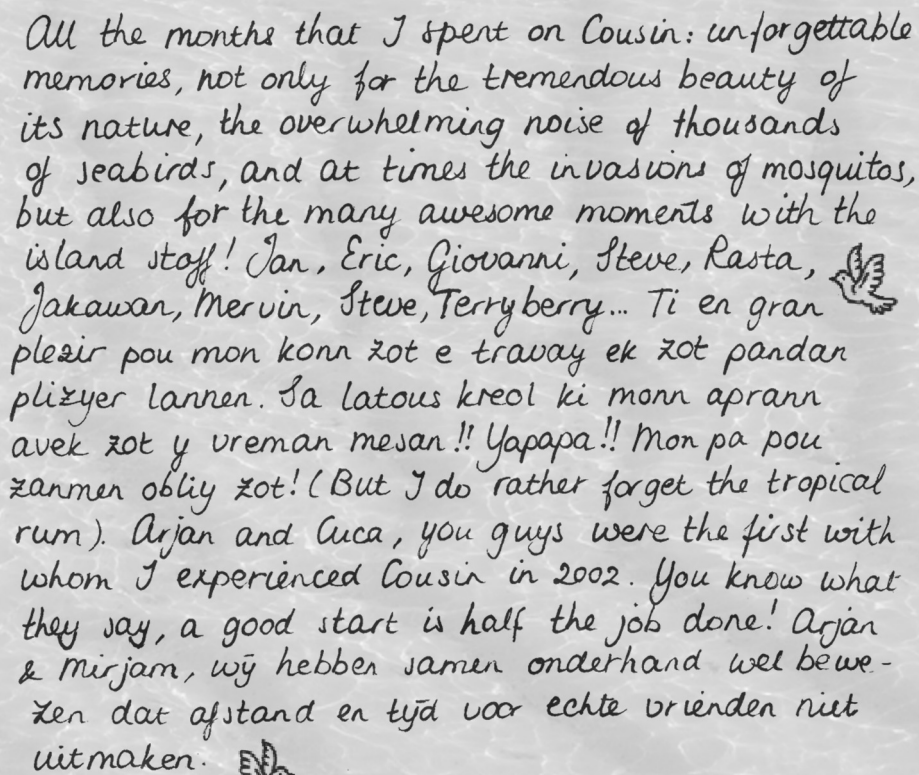 All the months that I spent on Cousin: unforgettable
memories, not only for the tremendous beauty of
its nature, the overwhelming noise of thousands
of seabirds, and at times the invasions of mosquitos,
but also for the many awesome moments with the
island staff! Jan, Eric, Giovanni, Steve, Rasta,
Jakawan, Mervin, Steve, Terryberry... Ti en gran
plezir pou mon konn zot e travay ek zot pandan
plizyer lannen. Sa latous kreol ki monn aprann
avek zot y vreman mesan!! Yapapa!! Mon pa pou
zanmen obliy zot! (But I do rather forget the tropical
rum). Arjan and Cuca, you guys were the first with
whom I experienced Cousin in 2002. You know what
they say, a good start is half the job done! Arjan
& Mirjam, wij hebben samen onderhand wel bewe-
zen dat afstand en tijd voor echte vrienden niet
uitmaken.